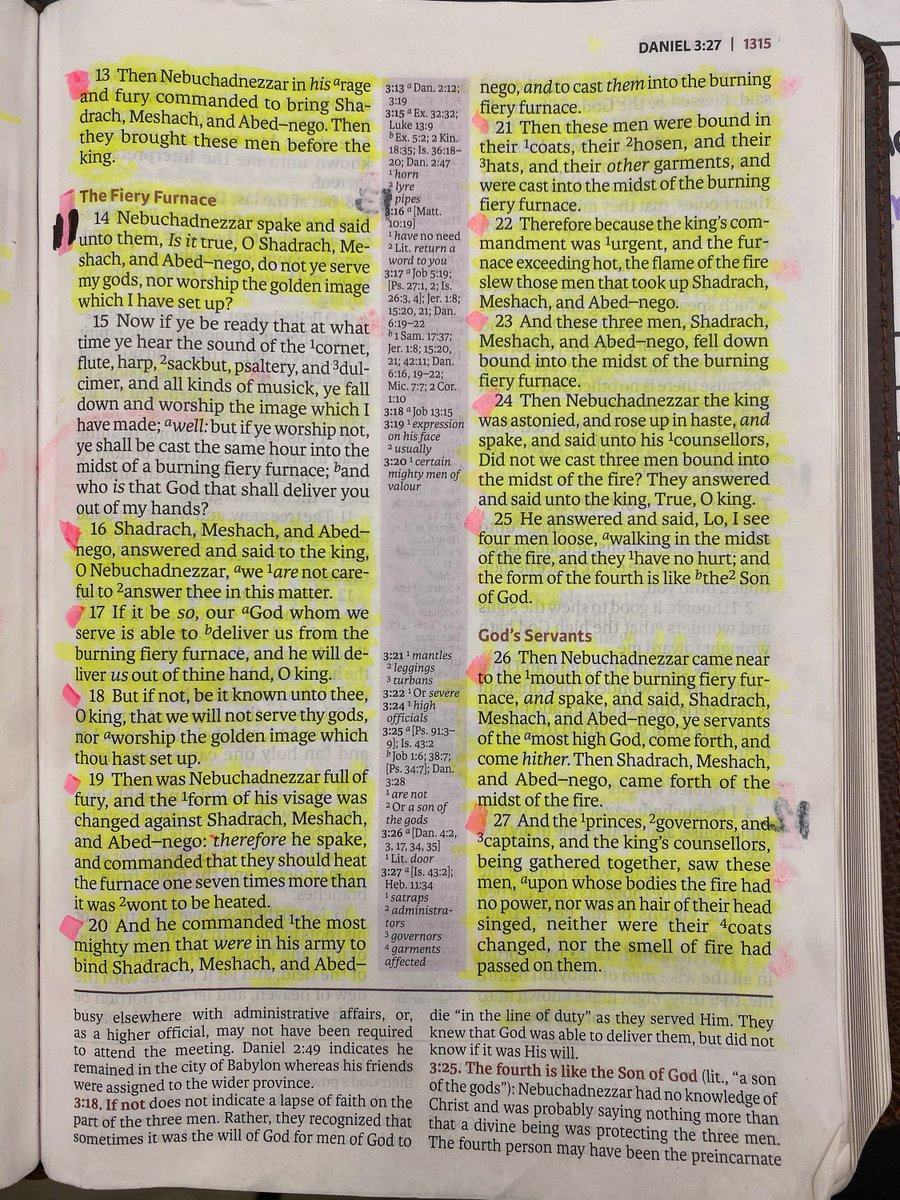 DANIEL 3:27 | 1315
13 Then Nebuchadnezzar in his ᵃrage
and fury commanded to bring Sha-
drach, Meshach, and Abed–nego. Then
they brought these men before the
king.
The Fiery Furnace
14 Nebuchadnezzar spake and said
unto them, Is it true, O Shadrach, Me-
shach, and Abed–nego, do not ye serve
my gods, nor worship the golden image
which I have set up?
15 Now if ye be ready that at what
time ye hear the sound of the ¹cornet,
flute, harp, ²sackbut, psaltery, and ³dul-
cimer, and all kinds of musick, ye fall
down and worship the image which I
have made; ᵃwell: but if ye worship not,
ye shall be cast the same hour into the
midst of a burning fiery furnace; ᵇand
who is that God that shall deliver you
out of my hands?
16 Shadrach, Meshach, and Abed–
nego, answered and said to the king,
O Nebuchadnezzar, ᵃwe ¹are not care-
ful to ²answer thee in this matter.
17 If it be so, our ᵃGod whom we
serve is able to ᵇdeliver us from the
burning fiery furnace, and he will de-
liver us out of thine hand, O king.
18 But if not, be it known unto thee,
O king, that we will not serve thy gods,
nor ᵃworship the golden image which
thou hast set up.
19 Then was Nebuchadnezzar full of
fury, and the ¹form of his visage was
changed against Shadrach, Meshach,
and Abed–nego: therefore he spake,
and commanded that they should heat
the furnace one seven times more than
it was ²wont to be heated.
20 And he commanded ¹the most
mighty men that were in his army to
bind Shadrach, Meshach, and Abed–
3:13 ᵃ Dan. 2:12;
3:19
3:15 ᵃ Ex. 32:32;
Luke 13:9
ᵇ Ex. 5:2; 2 Kin.
18:35; Is. 36:18–
20; Dan. 2:47
¹ horn
² lyre
³ pipes
3:16 ᵃ [Matt.
10:19]
¹ have no need
² Lit. return a
word to you
3:17 ᵃ Job 5:19;
[Ps. 27:1, 2; Is.
26:3, 4]; Jer. 1:8;
15:20, 21; Dan.
6:19–22
ᵇ 1 Sam. 17:37;
Jer. 1:8; 15:20,
21; 42:11; Dan.
6:16, 19–22;
Mic. 7:7; 2 Cor.
1:10
3:18 ᵃ Job 13:15
3:19 ¹ expression
on his face
² usually
3:20 ¹ certain
mighty men of
valour
3:21 ¹ mantles
² leggings
³ turbans
3:22 ¹ Or severe
3:24 ¹ high
officials
3:25 ᵃ [Ps. 91:3–
9]; Is. 43:2
ᵇ Job 1:6; 38:7;
[Ps. 34:7]; Dan.
3:28
¹ are not
² Or a son of
the gods
3:26 ᵃ [Dan. 4:2,
3, 17, 34, 35]
¹ Lit. door
3:27 ᵃ [Is. 43:2];
Heb. 11:34
¹ satraps
² administra-
tors
³ governors
⁴ garments
affected
nego, and to cast them into the burning
fiery furnace.
21 Then these men were bound in
their ¹coats, their ²hosen, and their
³hats, and their other garments, and
were cast into the midst of the burning
fiery furnace.
22 Therefore because the king's com-
mandment was ¹urgent, and the fur-
nace exceeding hot, the flame of the fire
slew those men that took up Shadrach,
Meshach, and Abed–nego.
23 And these three men, Shadrach,
Meshach, and Abed–nego, fell down
bound into the midst of the burning
fiery furnace.
24 Then Nebuchadnezzar the king
was astonied, and rose up in haste, and
spake, and said unto his ¹counsellors,
Did not we cast three men bound into
the midst of the fire? They answered
and said unto the king, True, O king.
25 He answered and said, Lo, I see
four men loose, ᵃwalking in the midst
of the fire, and they ¹have no hurt; and
the form of the fourth is like ᵇthe² Son
of God.
God's Servants
26 Then Nebuchadnezzar came near
to the ¹mouth of the burning fiery fur-
nace, and spake, and said, Shadrach,
Meshach, and Abed–nego, ye servants
of the ᵃmost high God, come forth, and
come hither. Then Shadrach, Meshach,
and Abed–nego, came forth of the
midst of the fire.
27 And the ¹princes, ²governors, and
³captains, and the king's counsellors,
being gathered together, saw these
men, ᵃupon whose bodies the fire had
no power, nor was an hair of their head
singed, neither were their ⁴coats
changed, nor the smell of fire had
passed on them.
busy elsewhere with administrative affairs, or,
as a higher official, may not have been required
to attend the meeting. Daniel 2:49 indicates he
remained in the city of Babylon whereas his friends
were assigned to the wider province.
3:18. If not does not indicate a lapse of faith on the
part of the three men. Rather, they recognized that
sometimes it was the will of God for men of God to
die “in the line of duty” as they served Him. They
knew that God was able to deliver them, but did not
know if it was His will.
3:25. The fourth is like the Son of God (lit., “a son
of the gods”): Nebuchadnezzar had no knowledge of
Christ and was probably saying nothing more than
that a divine being was protecting the three men.
The fourth person may have been the preincarnate